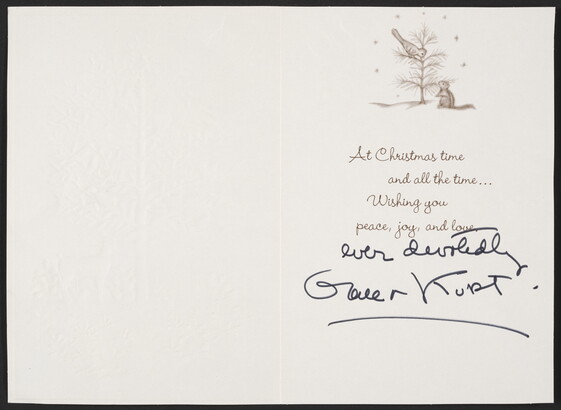 At Christmas time
and all the time...
Wishing you
peace, joy, and love,
ever devotedly
Grace + Kurt.